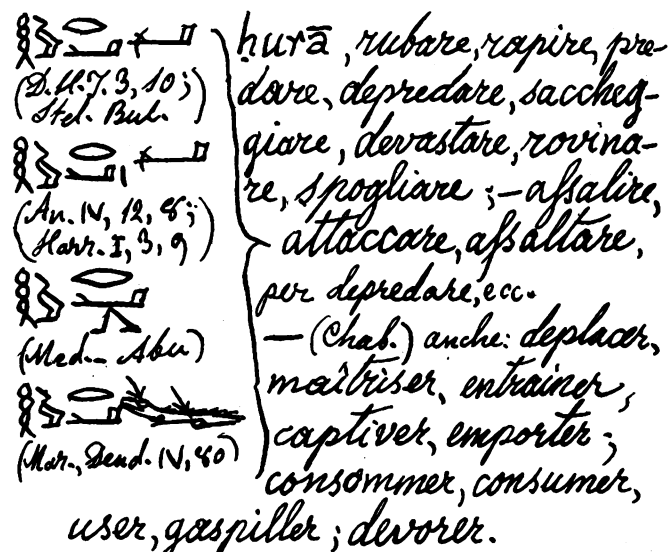 (D.H.J. 3, 10;
Stel. Bul.)
(An. IV, 12, 8;
Harr. I, 3, 9)
(Med. Abu)
(Mar., Dend. IV, 80)
ḥurā, rubare, rapire, pre-
dare, depredare, saccheg-
giare, devastare, rovina-
re, spogliare; – assalire,
attaccare, assaltare,
per depredare, ecc.
— (Chab.) anche: deplacer,
maîtriser, entrainer,
captiver, emporter;
consommer, consumer,
user, gaspiller; devorer.